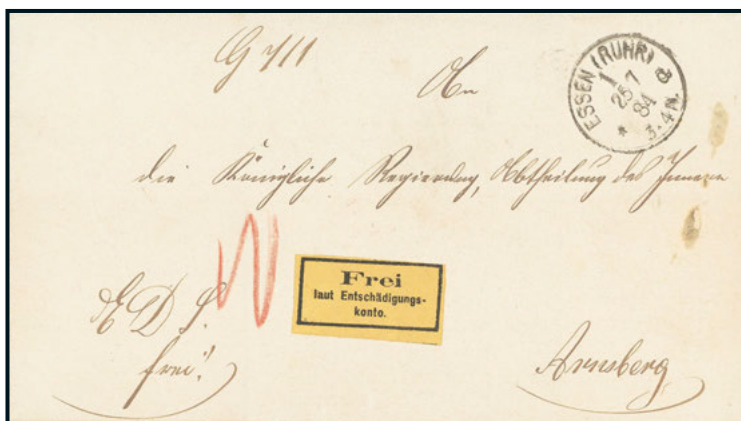 G 711
An
ESSEN (RUHR)
1 a
25 7
84
* 3-4 N.
die Königliche Regierung, Abtheilung des Innern
Frei
laut Entschädigungs-
konto.
frei!
Arnsberg